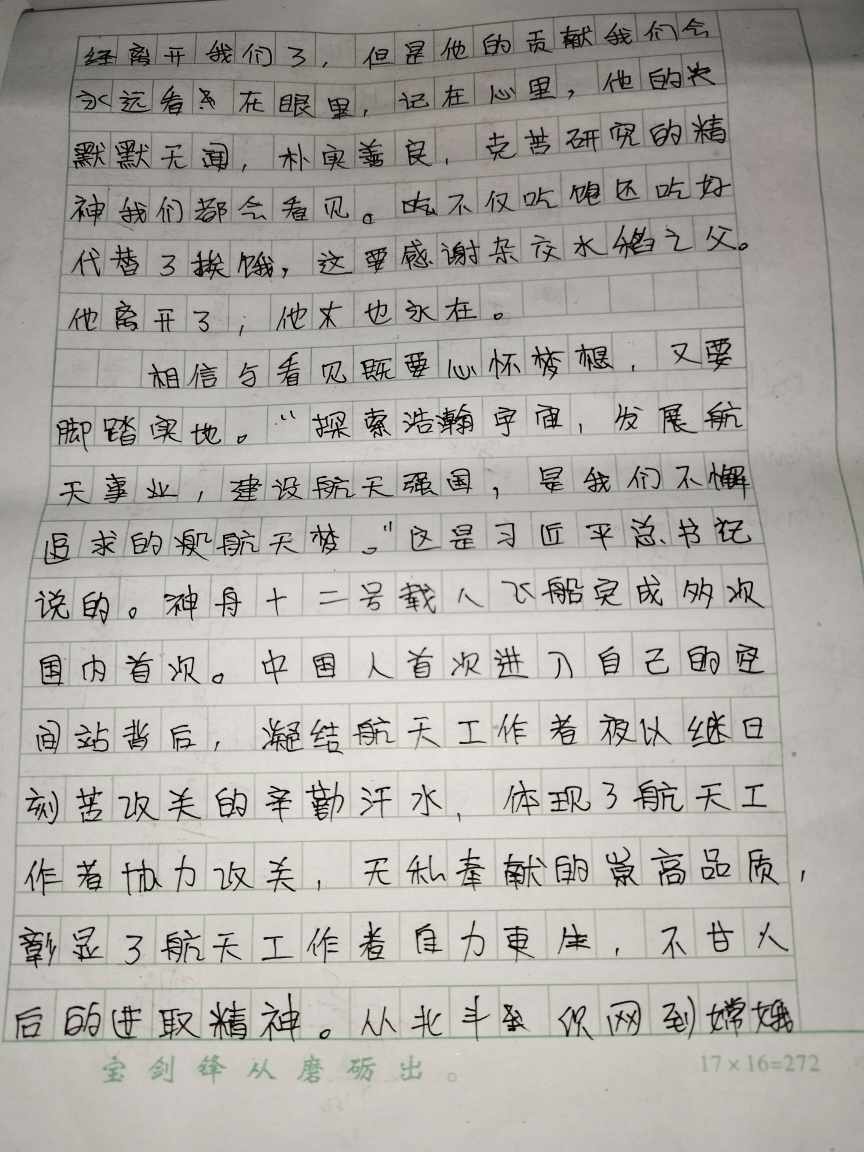 经离开我们了，但是他的贡献我们会
永远看在眼里，记在心里，他的
默默无闻，朴实善良，克苦研究的精
神我们都会看见。吃不仅吃饱还吃好
代替了挨饿，这要感谢杂交水稻之父。
他离开了，他也永在。
相信与看见既要心怀梦想，又要
脚踏实地。“探索浩瀚宇宙，发展航
天事业，建设航天强国，是我们不懈
追求的航天梦。”这是习近平总书记
说的。神舟十二号载人飞船完成多次
国内首次。中国人首次进入自己的空
间站背后，凝结航天工作者夜以继日
刻苦攻关的辛勤汗水，体现了航天工
作者协力攻关，无私奉献的崇高品质，
彰显了航天工作者自力更生，不甘人
后的进取精神。从北斗织网到嫦娥
宝剑锋从磨砺出。
17×16=272